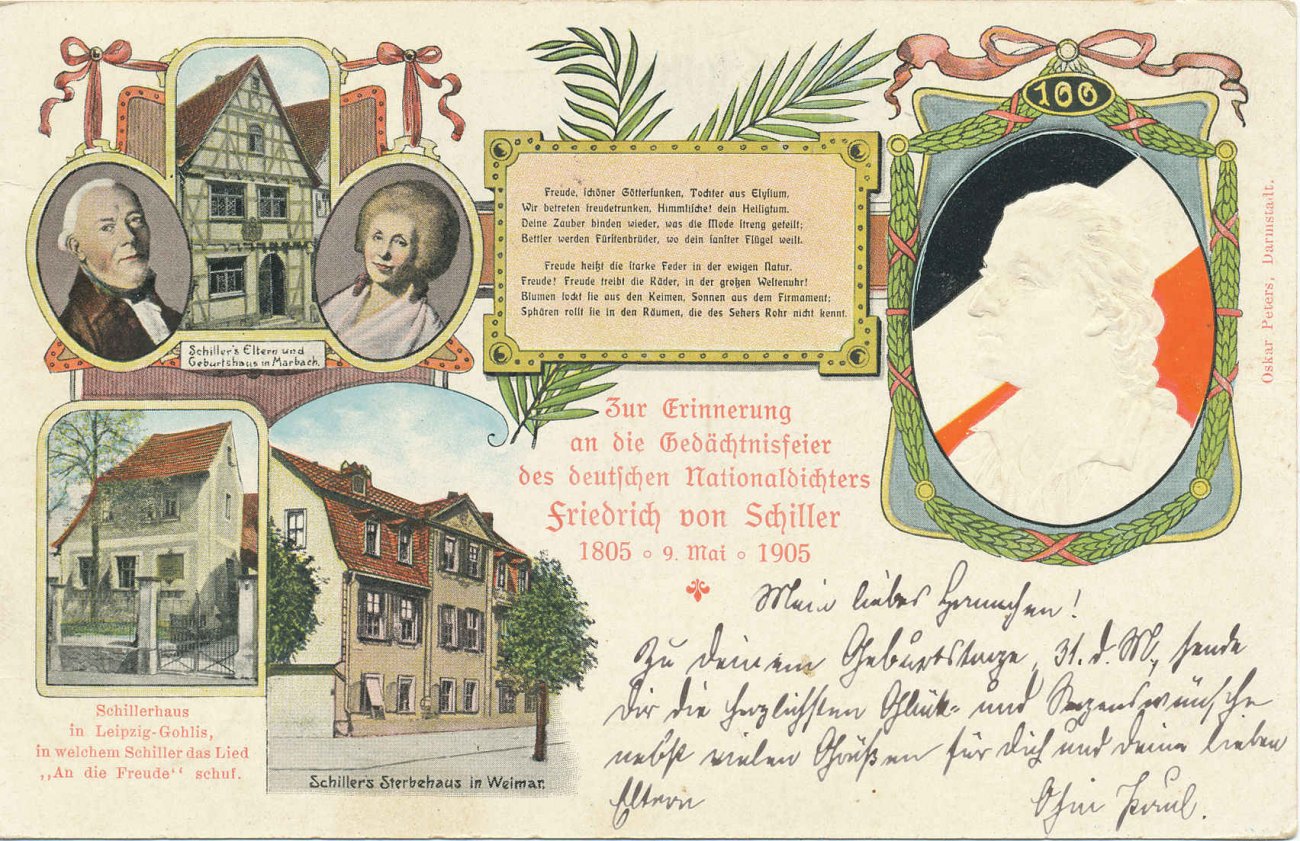 Schiller's Eltern und
Geburtshaus in Marbach.
Freude, schöner Götterfunken, Tochter aus Elysium.
Wir betreten freudetrunken, Himmlische! dein Heiligtum.
Deine Zauber binden wieder, was die Mode streng geteilt;
Bettler werden Fürstenbrüder, wo dein sanfter Flügel weilt.
Freude heißt die starke Feder in der ewigen Natur.
Freude! Freude treibt die Räder, in der großen Weltenuhr!
Blumen lockt sie aus den Keimen, Sonnen aus dem Firmament;
Sphären rollt sie in den Räumen, die des Sehers Rohr nicht kennt.
100
Oskar Peters, Darmstadt.
Zur Erinnerung
an die Gedächtnisfeier
des deutschen Nationaldichters
Friedrich von Schiller
1805 ◦ 9. Mai ◦ 1905
Schillerhaus
in Leipzig-Gohlis,
in welchem Schiller das Lied
„An die Freude“ schuf.
Schillers Sterbehaus in Weimar.
Mein liebes
Zu deinem Geburtstage, 31. d. M., sende
Dir die herzlichsten Glück- und Segenswünsche
nebst vielen Grüßen für Dich und deine lieben
Eltern
Paul.